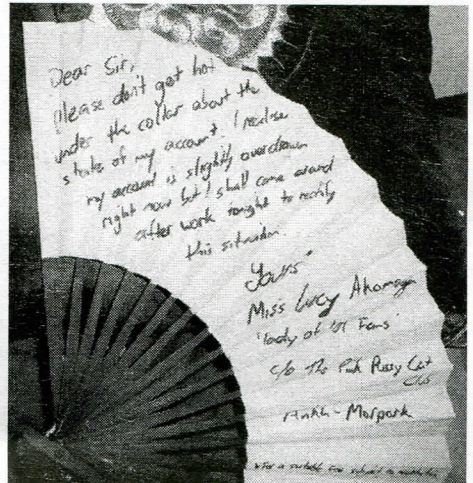 Dear Sir,
please don't get hot
under the collar about the
state of my account. I realise
my account is slightly overdrawn
right now but I shall come around
after work tonight to rectify
this situation.
Yours*
Miss Lucy
'lady of '01 Fans'
c/o The Pink Pussy Cat
Club
Ankh-Morpork
* For a suitable fee, subject to